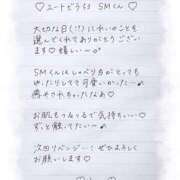 ♡ ユートどうろ SMくん ♡
大切な日(!?)にれいのことを
選んでくれてありがとうござい
ます♡ 嬉しい〜♪
SMくんはしゃべり方がとっても
ゆったりしてて可愛いかった〜♪
癒やされちゃったなあ♡
お肌もつるつるで気持ちいい♡
ずっと触ってたい〜♪
次回リベンジー！ぜひよろしく
お願いします♡